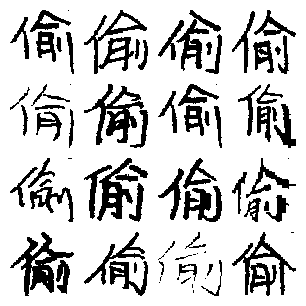 偷偷偷偷
偷偷偷偷
偷偷偷偷
偷偷偷偷